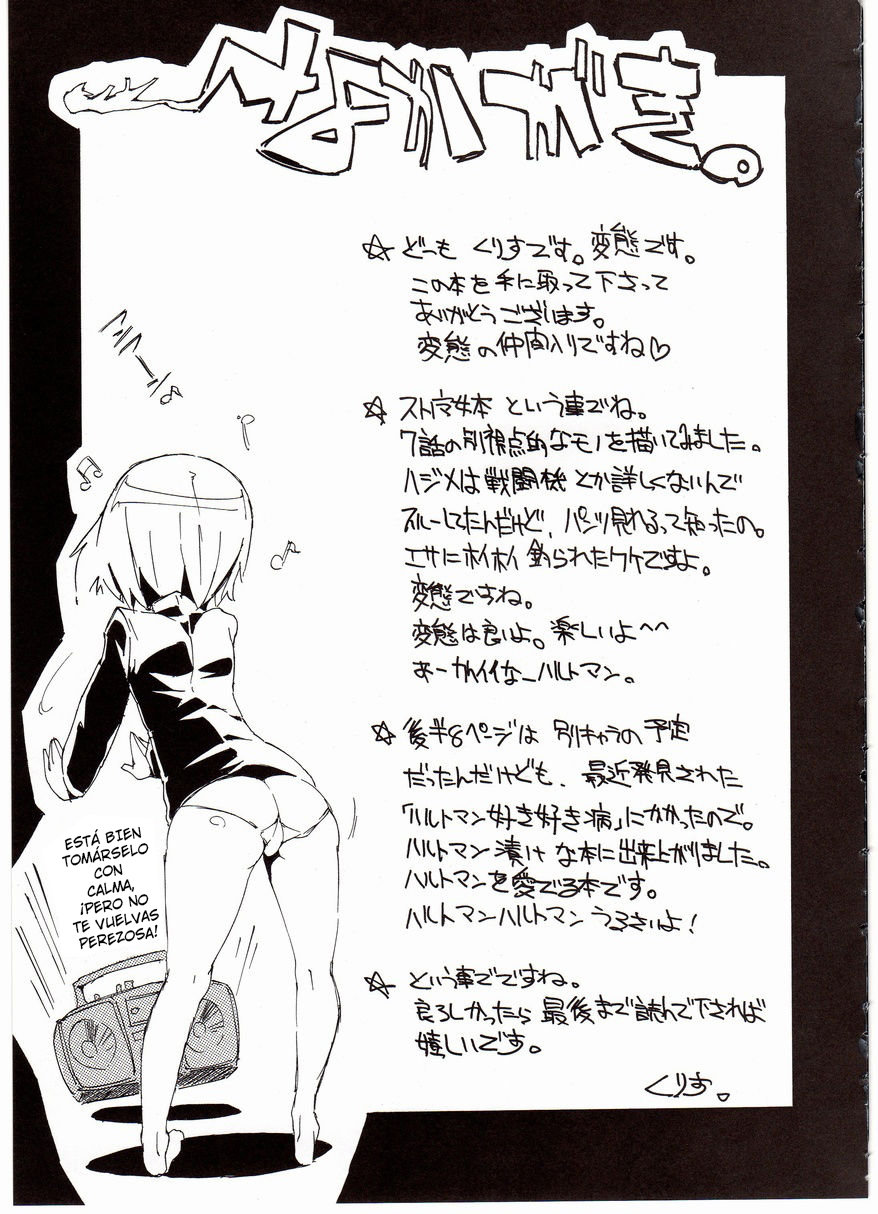 なかがき。
☆ どーも くりすです。変態です。
この本を手に取って下さって
ありがとうございます。
変態の仲間入りですね♡
☆ ストパン本 という事でね。
7話の別視点的なモノを描いてみました。
ハジメは戦闘機とか詳しくないんで
スルーしてたんだけど、パンツ見れるって知ったの。
エサにホイホイ釣られたワケですよ。
変態ですね。
変態は良いよ。楽しいよ~~
あーかわイイなーハルトマン。
☆ 後半8ページは 別キャラの予定
だったんだけども、最近発見された
「ハルトマン好き好き病」にかかったので。
ハルトマン漬けな本に出来上がりました。
ハルトマンを愛でる本です。
ハルトマンハルトマンうるさいよ!
☆ という事でですね。
良ろしかったら 最後まで読んで下されば
嬉しいです。
くりす。
ESTÁ BIEN
TOMÁRSELO
CON
CALMA,
¡PERO NO
TE VUELVAS
PEREZOSA!